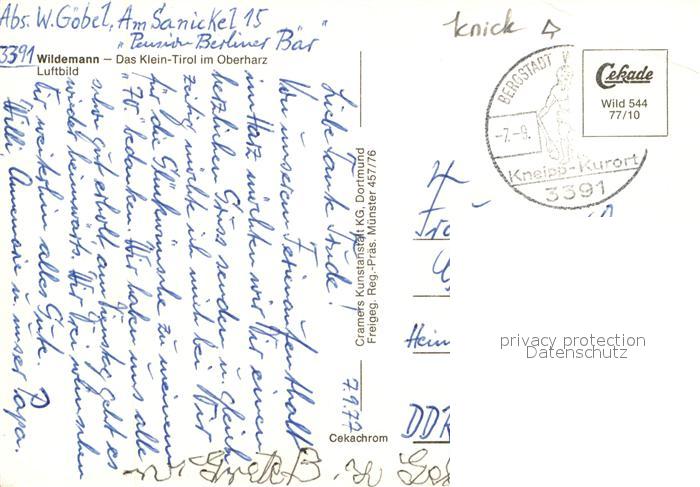 Abs. W. Göbel, Am Sanickel 15
"Pension Berliner Bär"
3391
Wildemann – Das Klein-Tirol im Oberharz
Luftbild
knick
BERGSTADT
-7.-9.
Kneipp-Kurort
3391
Cekade
Wild 544
77/10
7.9.77
Liebe Tante Trude!
Von unserem Ferienaufenthalt
im Harz möchten wir Dir einen
herzlichen Gruss senden u. gleich-
zeitig möchte ich mich bei Dir
für die Glückwünsche zu meinem
"70" bedanken. Wir haben uns alle
schon gut erholt am Dienstag geht es
wieder heimwärts. Wir drei wünschen
Dir weiterhin alles Gute.
Willi, Annmarie u. unser Papa.
Cramers Kunstanstalt KG, Dortmund
Freigeg. Reg.-Präs. Münster 457/76
Cekachrom
Hein
DDR
privacy protection
Datenschutz